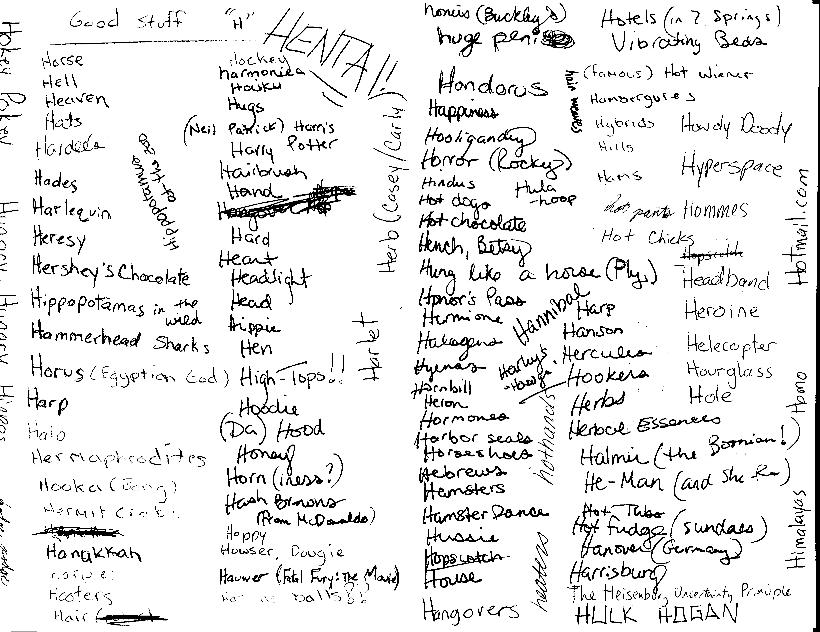 Good Stuff "H"
HENTAI!
Horse
Hell
Heaven
Hats
Hardees
Hades
Harlequin
Heresy
Hershey's Chocolate
Hippopotamas in the wild
Hammerhead Sharks
Horus (Egyptian God)
Harp
Halo
Hermaphrodites
Hooka (Bong)
Hanukkah
Hooters
Hair
Hippopotamus at the zoo
Hockey
harmonica
Haiku
Hugs
(Neil Patrick) Harris
Harry Potter
Hairbrush
Hand
Hard
Heart
Headlight
Head
Hippie
Hen
High-Tops!!
Hoodie
(Da) Hood
Honey
Horn (iness?)
Hash Browns
(From McDonalds)
Happy
Howser, Dougie
Hauwer (Fatal Fury: The Movie)
Hot as balls!!
Herb (Casey/Carly)
Harlet
horcis (Buckley's)
huge
Hondorus
Happiness
Hooliganday
Horror (Rocky)
Hindus
Hula-hoop
Hot dogs
Hot chocolate
Hench, Betsy
Hung like a horse (Plys)
Honor's Pass
Hermione
Halagens
Hyenas
Hornbill
Heron
Hormones
Harbor seals
Horseshoes
Hebrews
Hamsters
Hamster Dance
Hussie
Hopscotch
House
Hangovers
Hannibal
hothands
heaters
hair weaves
Hotels (in 7 Springs)
Vibrating Beds
(famous) Hot Wiener
Hambergures
Hybrids
Hills
Hams
hot pants
Hot Chicks
Howdy Doody
Hyperspace
Hommes
Headband
Heroine
Helecopter
Hourglass
Hole
Harp
Hanson
Hercules
Hookers
Herbs
Herbal Essences
Halmir (the Bosnian!)
He-Man (and She-Ra)
Hot-Tubs
Hot Fudge (sundaes)
Hanover (Germany)
Harrisburg
The Heisenburg Uncertainty Principle
HULK HOGAN
Hotmail.com
Homo
Himalayas
Hokey Pokey
Hungry, Hungry Hippos